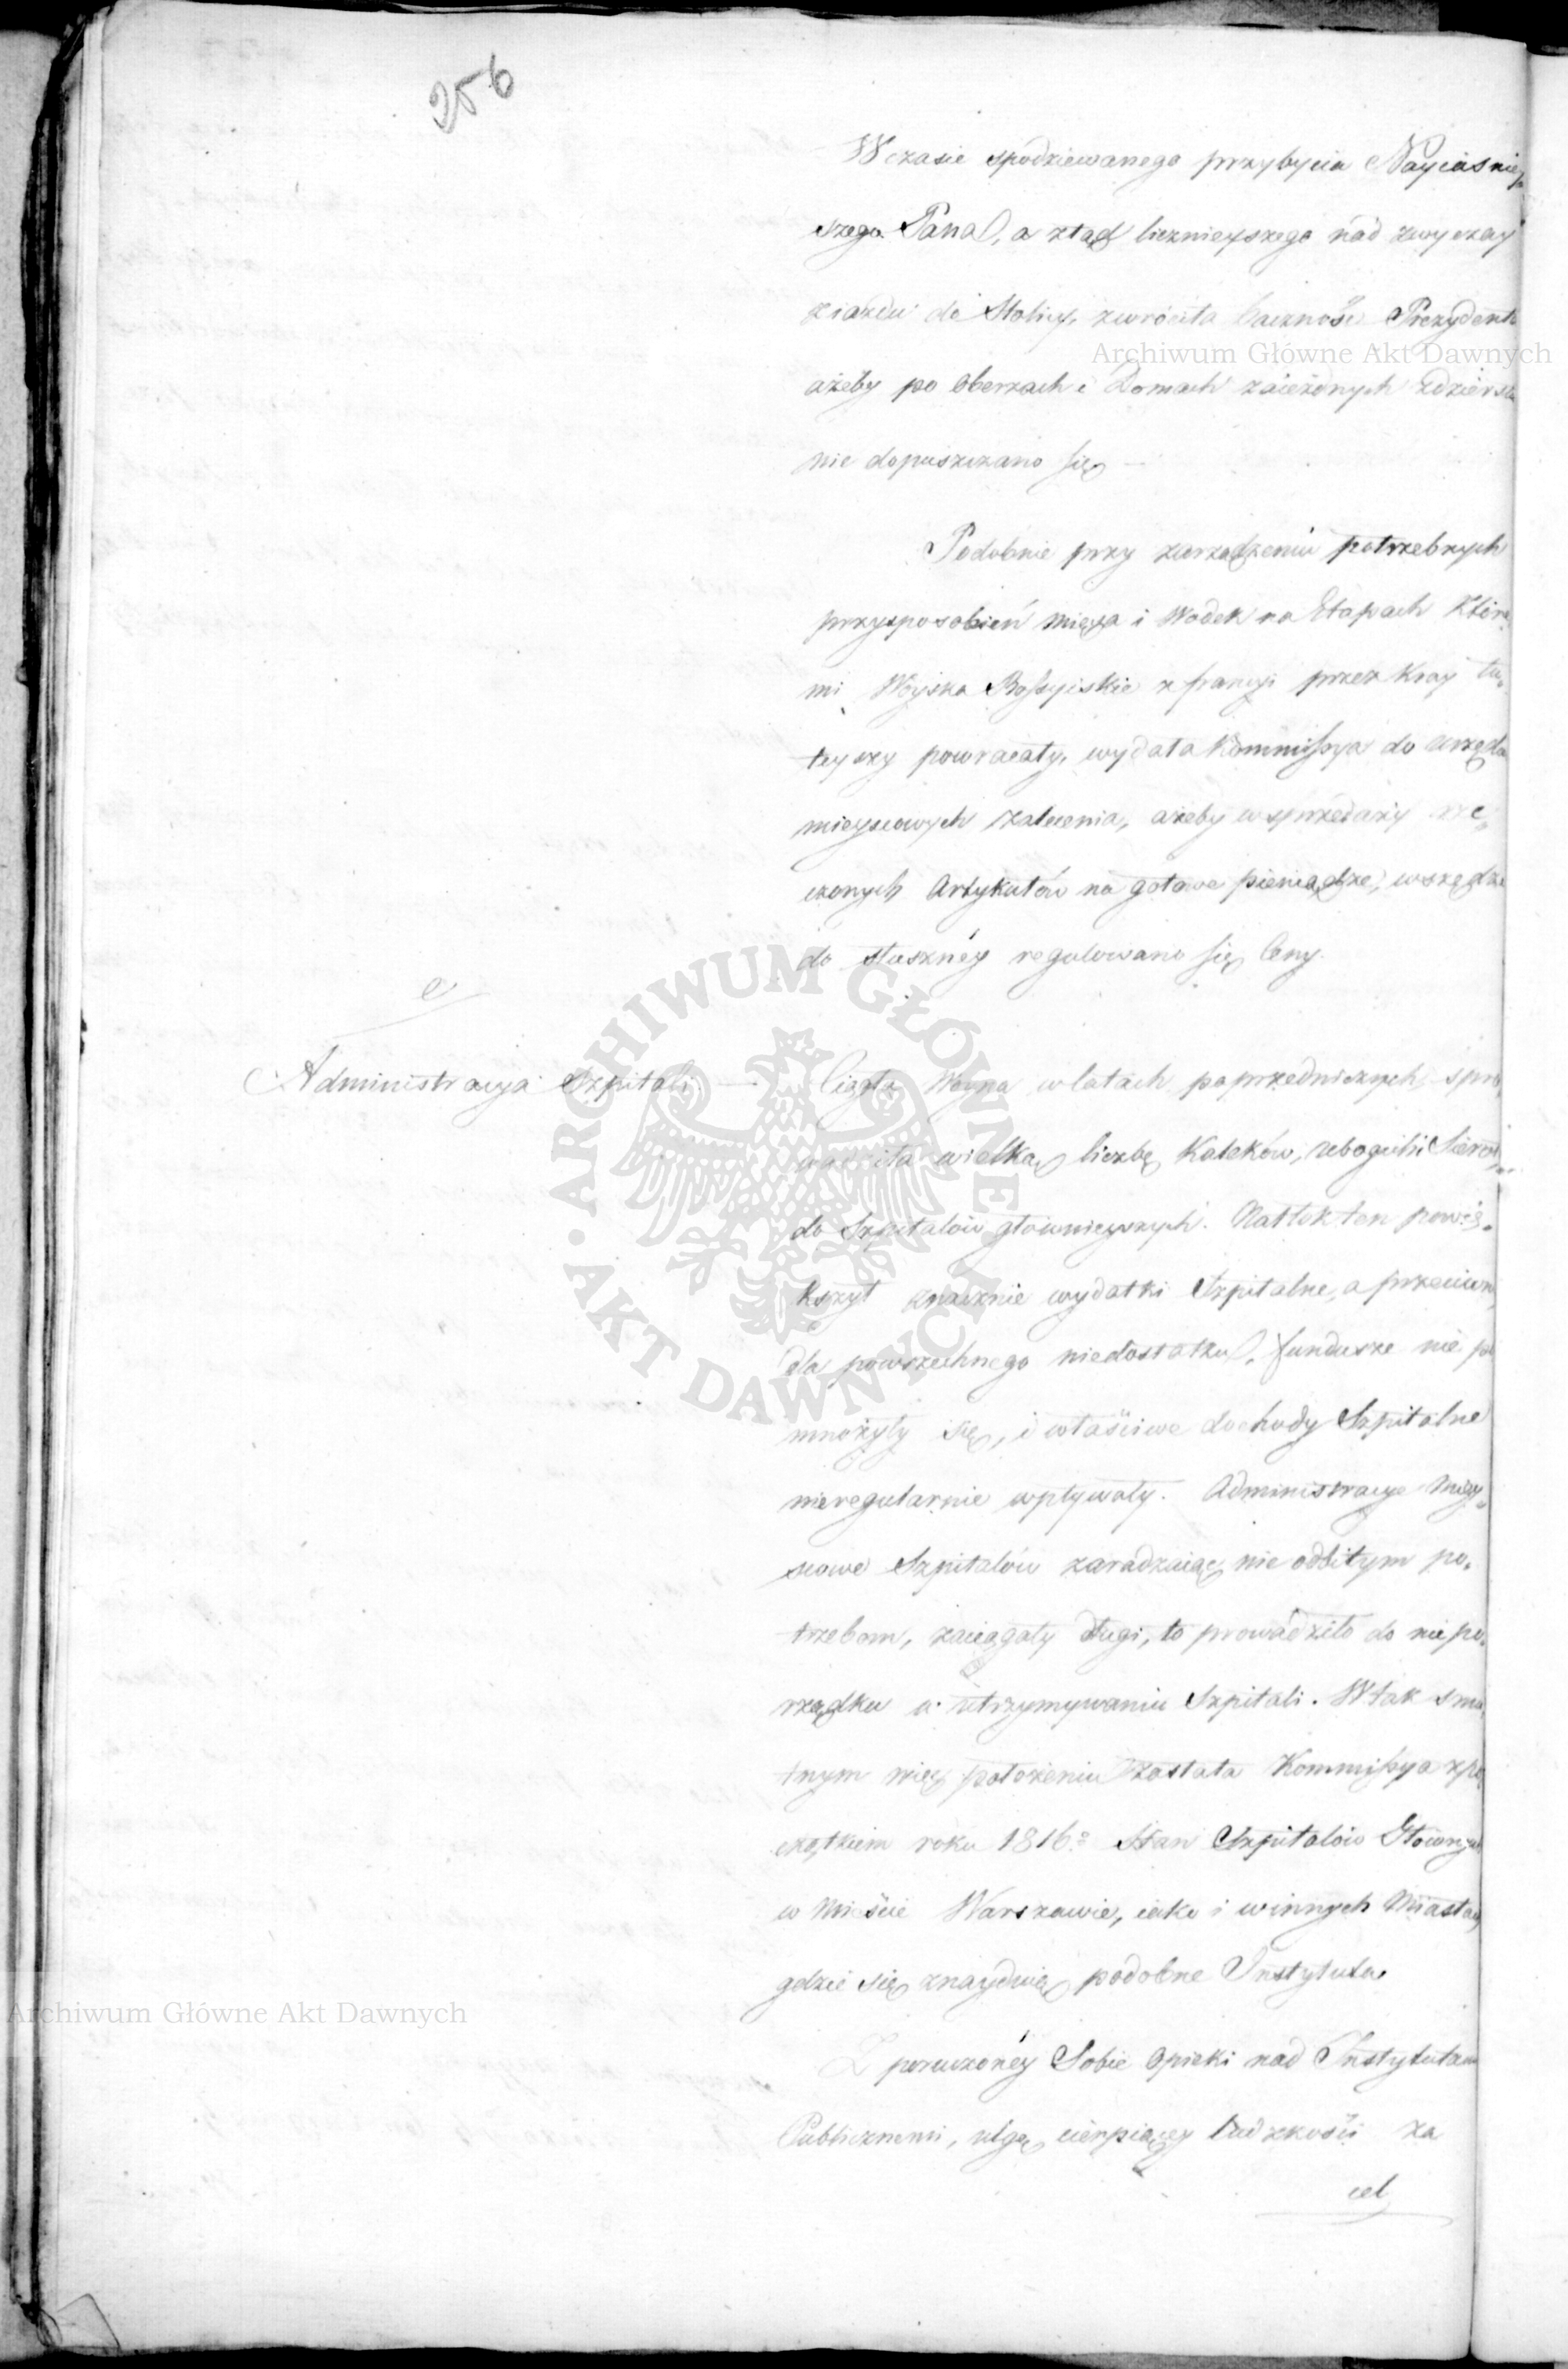 256
W czasie spodziewanego przybycia Nayiasniey
szego Pana, a ztąd licznieyszego nad zwyczay
ziazdu do Stolicy, zwróciła baczność Prezydenta
ażeby po Oberzach i Domach zaiezdnych zdzierstw
nie dopuszczano się —
Podobnie przy zarządzeniu potrzebnych
przysposobień mięsa i Wodek na Etapach któré„
mi Woyska Rossyiskie z francyi przez Kray tu„
teyszy powracały, wydała Kommissya do urzędów
mieyscowych zalecenia, ażeby w sprzedaży rze„
czonych Artykułów na gotowe pieniądze, wszędzie
do słusznéy regulowano się Ceny.
e
Administracya Szpitali. — Ciągła Woyna w latach poprzedniczych spro„
wadziła wielką liczbę Kaleków, ubogich i Sierot,
do Szpitalów główniejszych. Natłok ten powię„
kszył znacznie wydatki Szpitalne, a przeciwnie
dla powszechnego niedostatku, fundusze nie po
mnożyły się, i właściwe dochody Szpitalne
nieregularnie wpływały. Administracye Miey„
scowe Szpitalów zaradzaiąc nie odbitym po„
trzebom, zaciągały długi, to prowadziło do niepo„
rządku w utrzymywaniu Szpitali. W tak smu„
tnym więc położeniu zastała Kommissya z po
czątkiem roku 1816º Stan Szpitalów Głównych
w Mieście Warszawie, iako i w innych Miastach
gdzie się znayduią podobne Instytuta
Z poruczonéy Sobie Opieki nad Instytutami
Publicznemi, ulgę cierpiącey ludzkości za
cel
Archiwum Główne Akt Dawnych
Archiwum Główne Akt Dawnych
ARCHIWUM GŁÓWNE • AKT DAWNYCH •